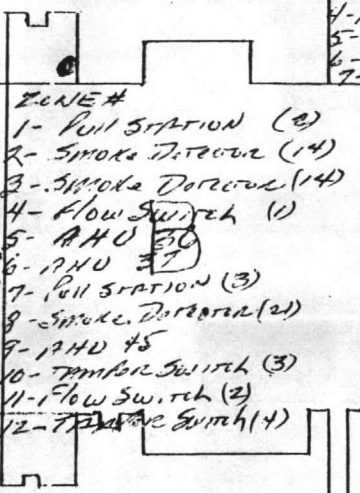 4-
5-
6-
7-
ZONE #
1- Pull STATION (2)
2- Smoke Detector (14)
3- Smoke Detector (14)
4- Flow Switch (1)
5- AHU
6- AHU 37
7- Pull STATION (3)
8- Smoke Detector (21)
9- AHU 45
10- TAMPER Switch (3)
11- Flow Switch (2)
12- Switch (4)